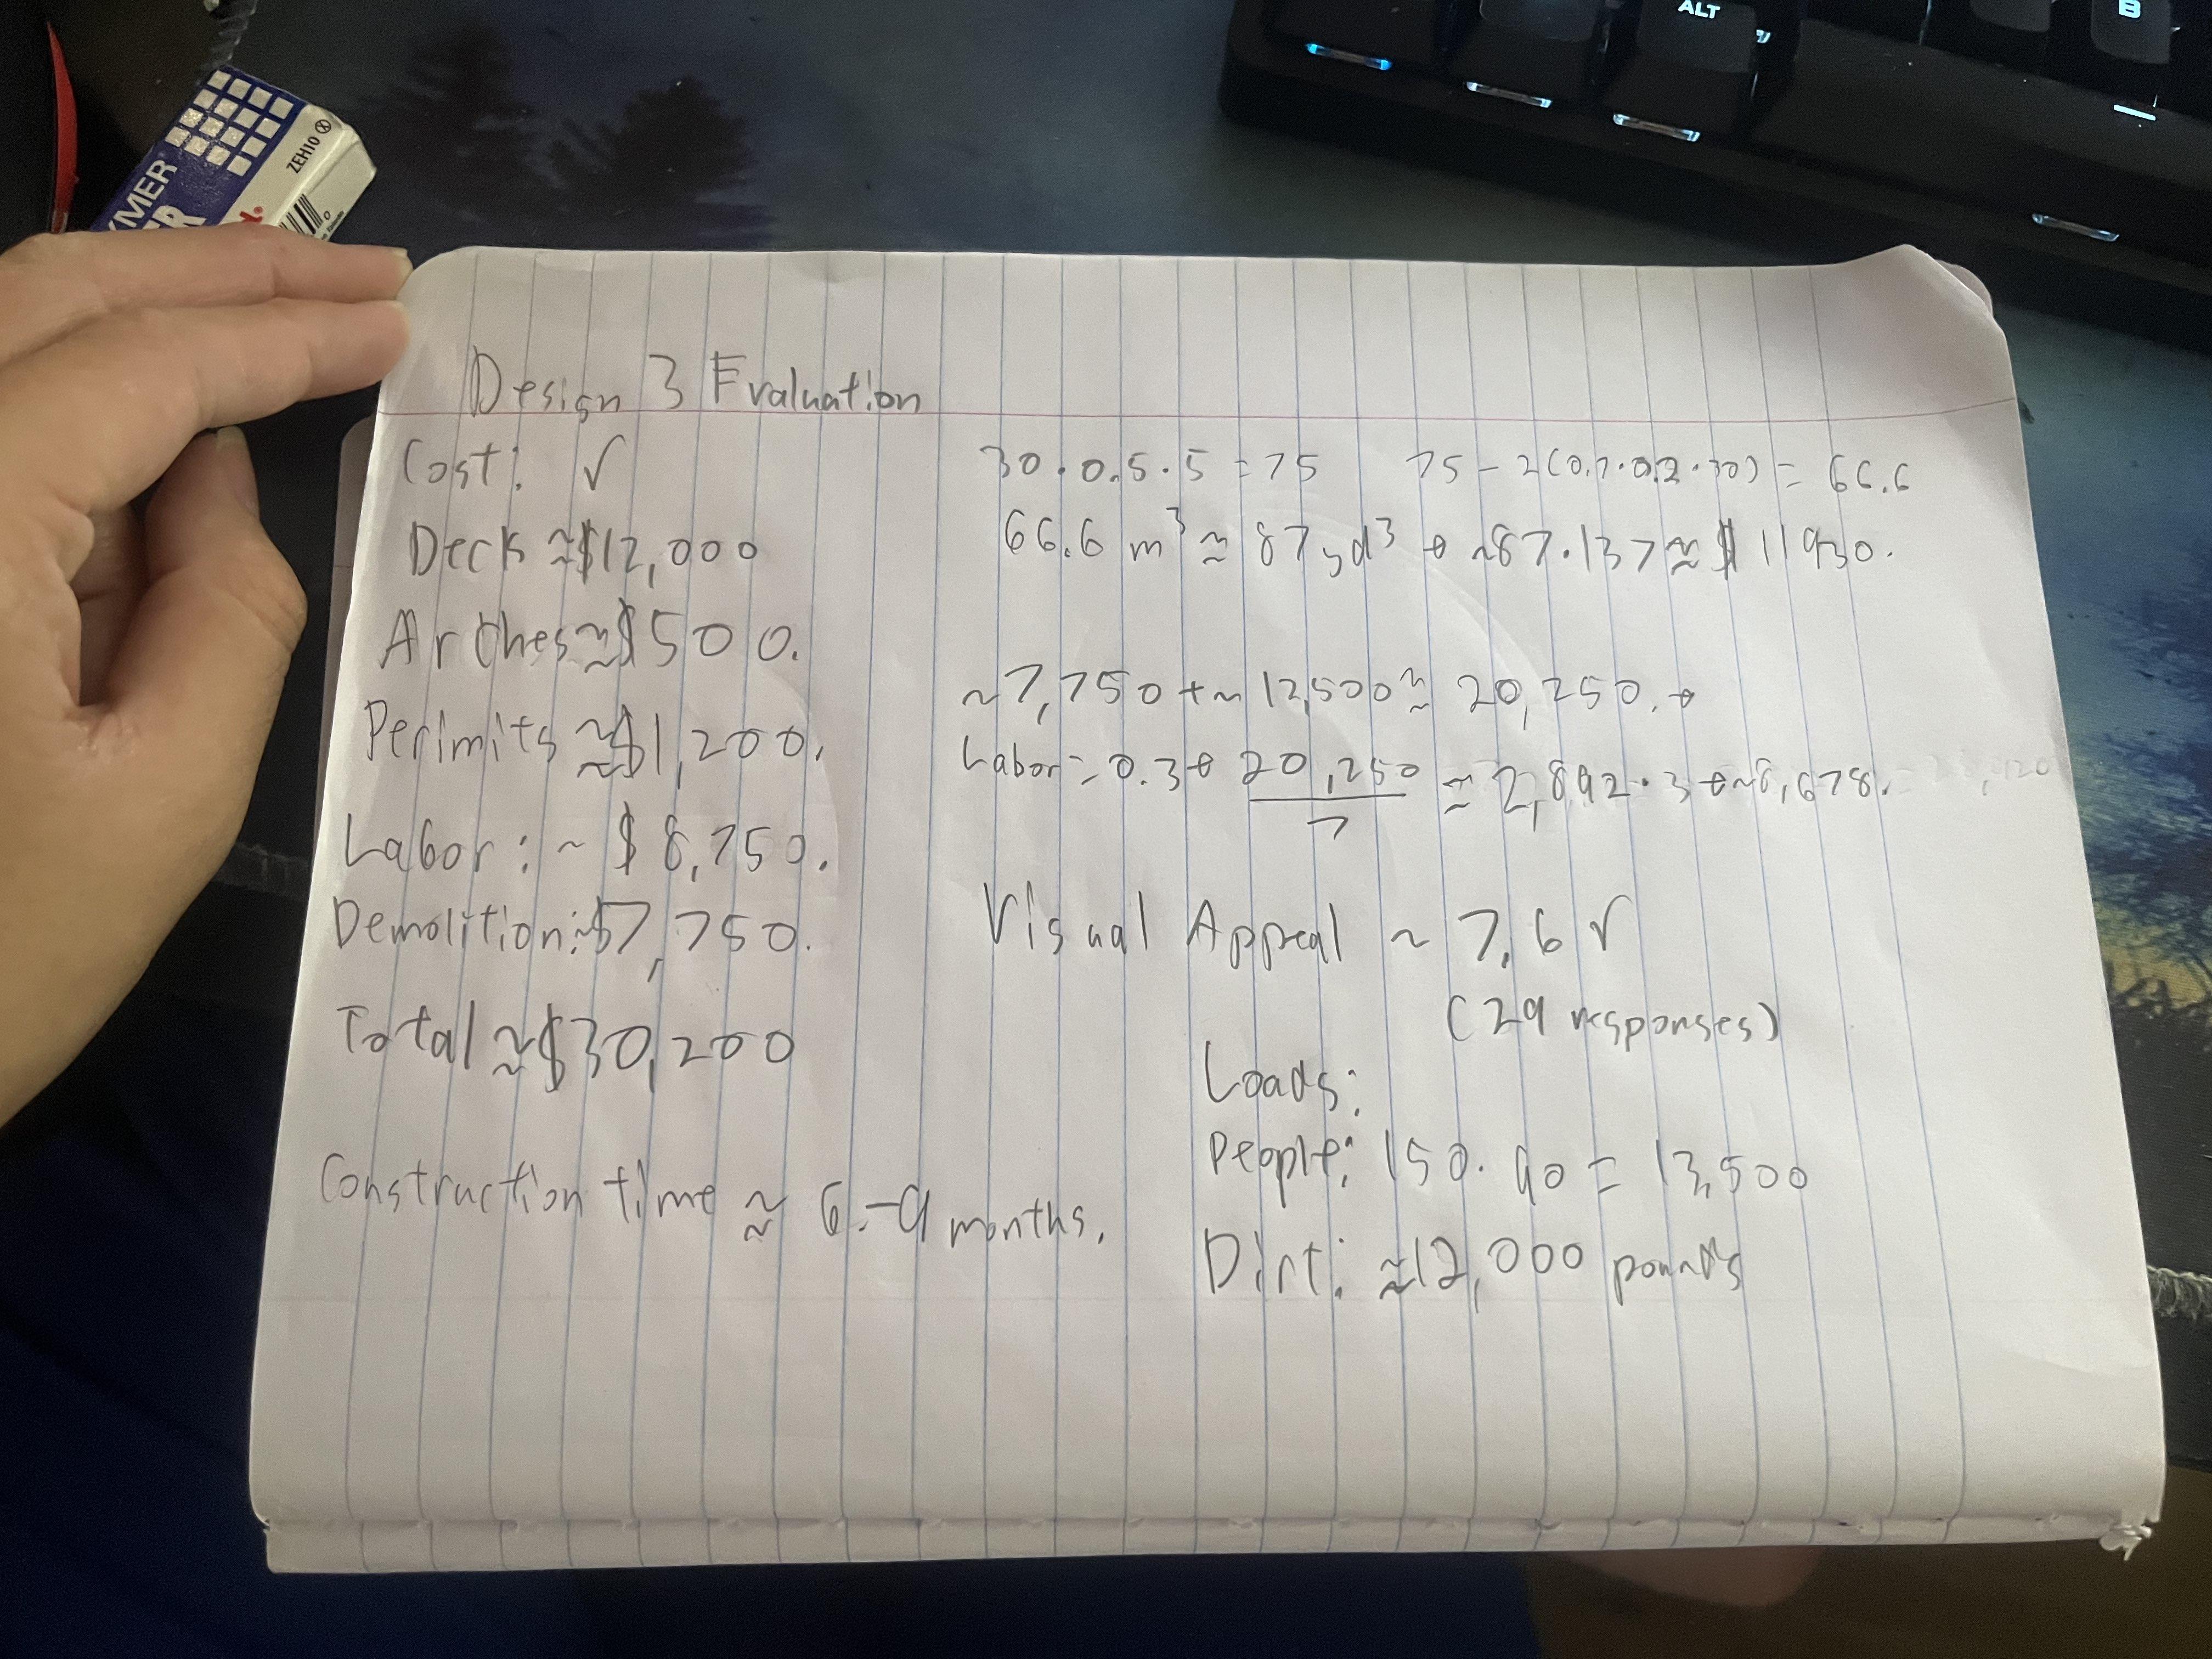 ALT
B
ZEH10
Design 3 Evaluation
Cost: √
Deck ≈$12,000
Arches≈$500.
Perimits ≈$1,200.
Labor: ~ $8,750.
Demolition:~$7,750.
Total ≈$30,200
Construction time ≈ 6-9 months.
30·0.5·5 = 75 75 - 2(0.7·0.2·30) = 66.6
66.6 m³ ≈ 87yd³ → ~87·137≈ $11930.
~7,750 + ~12,500 ≈ 20,250. →
Labor = 0.3 → 20,250 / 7 ≈ 2,892·3 → ~8,678.
Visual Appeal ~ 7.6 √
(29 responses)
Loads:
People: 150·90 = 13,500
Dirt: ≈12,000 pounds